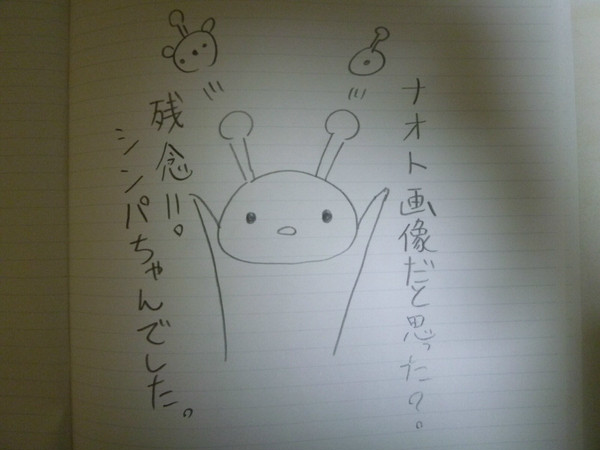 ナオト画像だと思った?。
残念!!。
シンパちゃんでした。